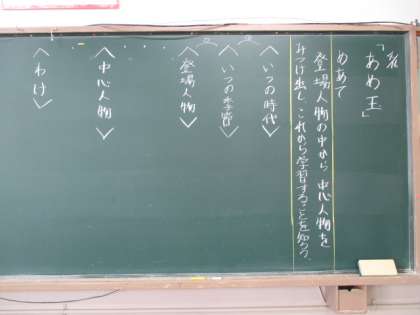 「あめ玉」
めあて
登場人物の中から 中心人物を
みつけ出し、これから学習することを知ろう。
〈いつの時代〉
〈いつの季節〉
〈登場人物〉
〈中心人物〉
〈わけ〉